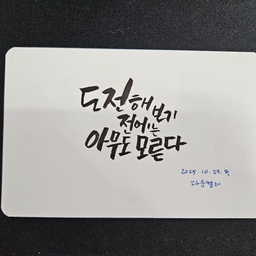 도전해 보기
전에는
아무도 모른다
2025. 10. 23. 목
다운캘리